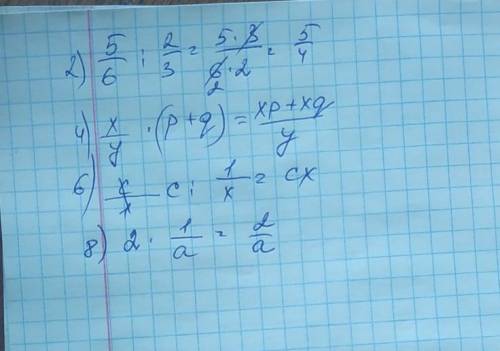 2) 5/6 : 2/3 = 5·3/6·2 2 = 5/4
4) x/y · (p+q) = xp+xq/y
6) x/x c : 1/x = cx
8) 2 · 1/a = 2/a